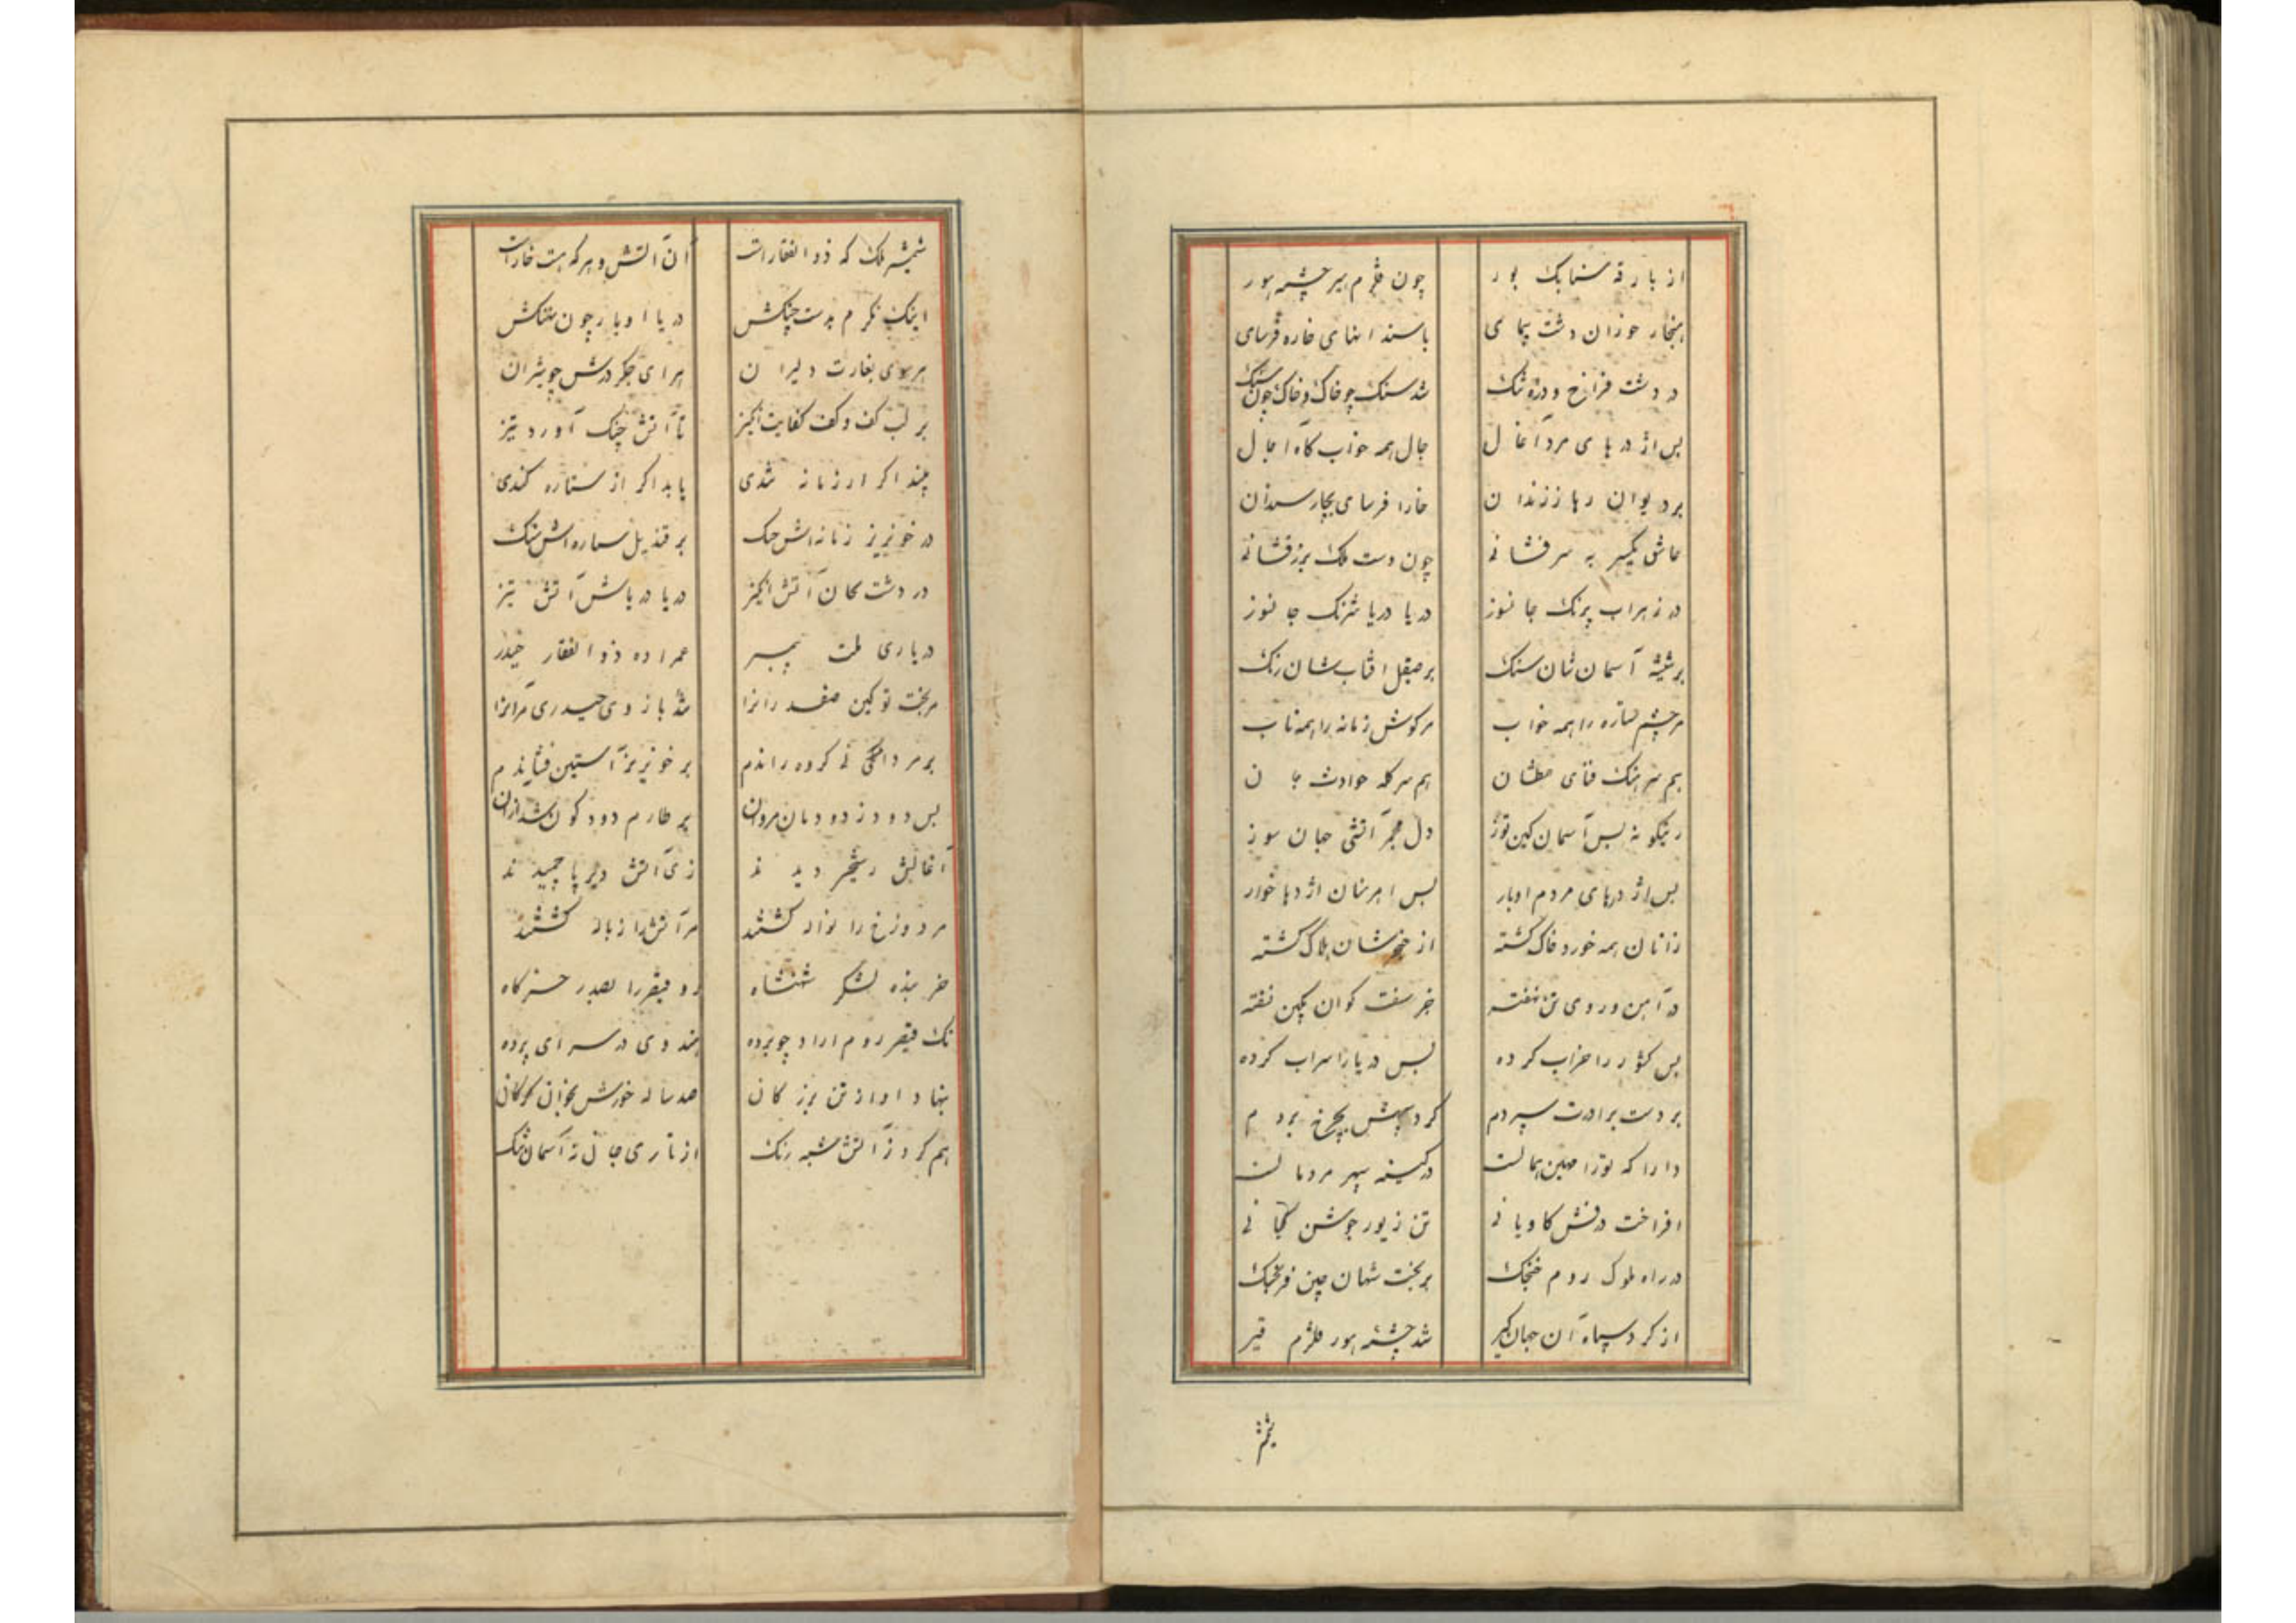 از بارقه سنابک بور چون قلزم بیر چشمه هور
هنجار حوزان دشت پیمای با سندانهای خاره فرسای
در دشت فراخ و دره تنک شد سنک چو خاک و خاک چون سنک
بس اژدرهای مردآغال جال همه خواب گاه اجال
بر دیوان رها ززندان خارا فرسای بچار سندان
عاشق یکسر به سرفشانی چون دست ملک بزرفشانی
در زهراب پرنک جانسوز دریا دریا شرنک جانسوز
بر شیشه آسمانشان سنک بر صیقل افتابشان رنک
مر چشم ستاره را همه خواب مر کوش زمانه را همه تاب
هم سرهنک فنای هم سرکله حوادث
رینکونه بس آسمان کین توز دل مجمر آتشی جهان سوز
بس اژدرهای مردم اوبار بس اهرمنان اژدها خوار
زانان همه خورد خاک کشته از خنجرشان هلاک کشته
در آهن و روی تن نهفته خر سفت کوان بکین نفته
بس کشور را خراب کرده بس دریا را سراب کرده
بر دست برادرت سپردم کرد سپهش بچرخ بردم
دارا که تو را مهین همالست در کینه سپهر مرد مالست
افراخت درفش کاویانی تن زیور جوشن کیانی
در راه ملوک روم خنجک بر بخت شهان چین فرنجک
از کرد سپاه آن جهان کیر شد چشمه هور قلزم قیر
شمشیر ملک که ذوالفقار است آن آتش و هر که هست خار است
اینک نکرم بدست چنکش دریا اوبار چون نهنکش
هر سوی بغارت دلیران هرای جکر درش چو شیران
بر لب کف و کف کفایت انکیز تا آتش جنک آورد تیز
پیند اکر از زمانه تندی یابد اکر از ستاره کندی
در خونریز زمانه اش جنک بر قندیل ستاره اش سنک
در دشت کان آتش انکیز دریا دریاش آتش تیز
در یاری ملت پیمبر همزاده ذوالفقار حیدر
مر بخت تو کین صفدر انرا شد بازوی حیدری مرانرا
بر مردانکی نی کروه راندم بر خونریز آستین فشاندم
بس دود ز دودمان مردان بر طارم دود کون شد ازان
آغالش رستخیز دیدند زی آتش دیر پا چمیدند
مر دوزخ را نواله کشتند مر آتش را زبانه کشتند
خر بنده لشکر شهنشاه دو قیصر را بصدر خرکاه
نک قیصر روم ارادو چو برده هندوی در سرای پرده
بنهاد اواز تن بزرکان صد ساله خورش بخوان کرکان
هم کرد ز آتش شبه رنک از تاری جان نه آسمان تنک